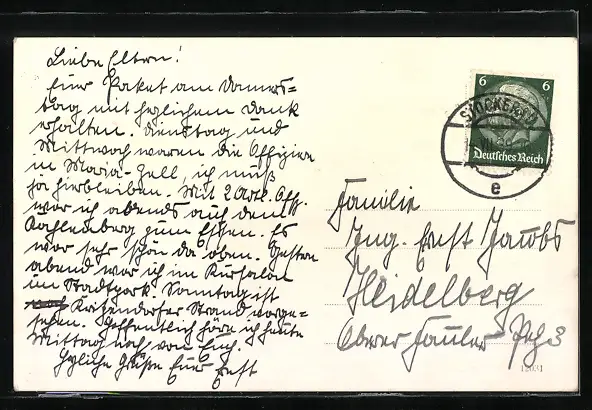 Liebe Eltern!
Euer Paket am Donners-
tag mit herzlichem Dank
erhalten. Dienstag und
Mittwoch waren die Offiziere
in Maria-Zell, ich muß
ja hierbleiben. Mit 2 Off.
war ich abends auf dem
Kahlenberg zum Essen. Es
war sehr schön da oben. Gestern
abend war ich im Kursalon
im Stadtpark. Sonntag ist
Kritzendorfer Strand vorge-
sehen. Hoffentlich höre ich heute
Mittag noch von Euch.
Herzliche Grüße Euer Ernst
6 6
Deutsches Reich
STOCKERAU
e
Familie
Ing. Ernst Jacobs
Heidelberg
Oberer Fauler Pelz 3
12031